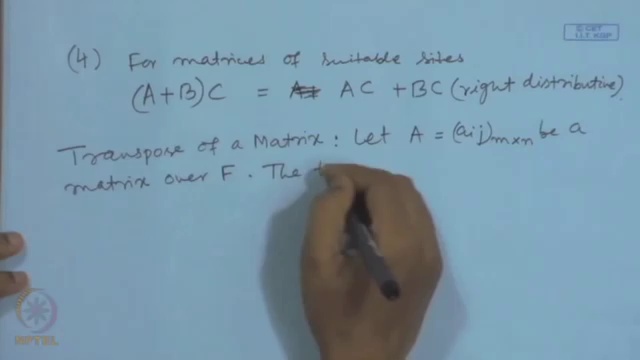 (4) For matrices of suitable sites
(A+B)C = AC + BC (right distributive).
Transpose of a Matrix : Let A = (aij)m×n be a
matrix over F. The t
© CET
I.I.T. KGP
NPTEL